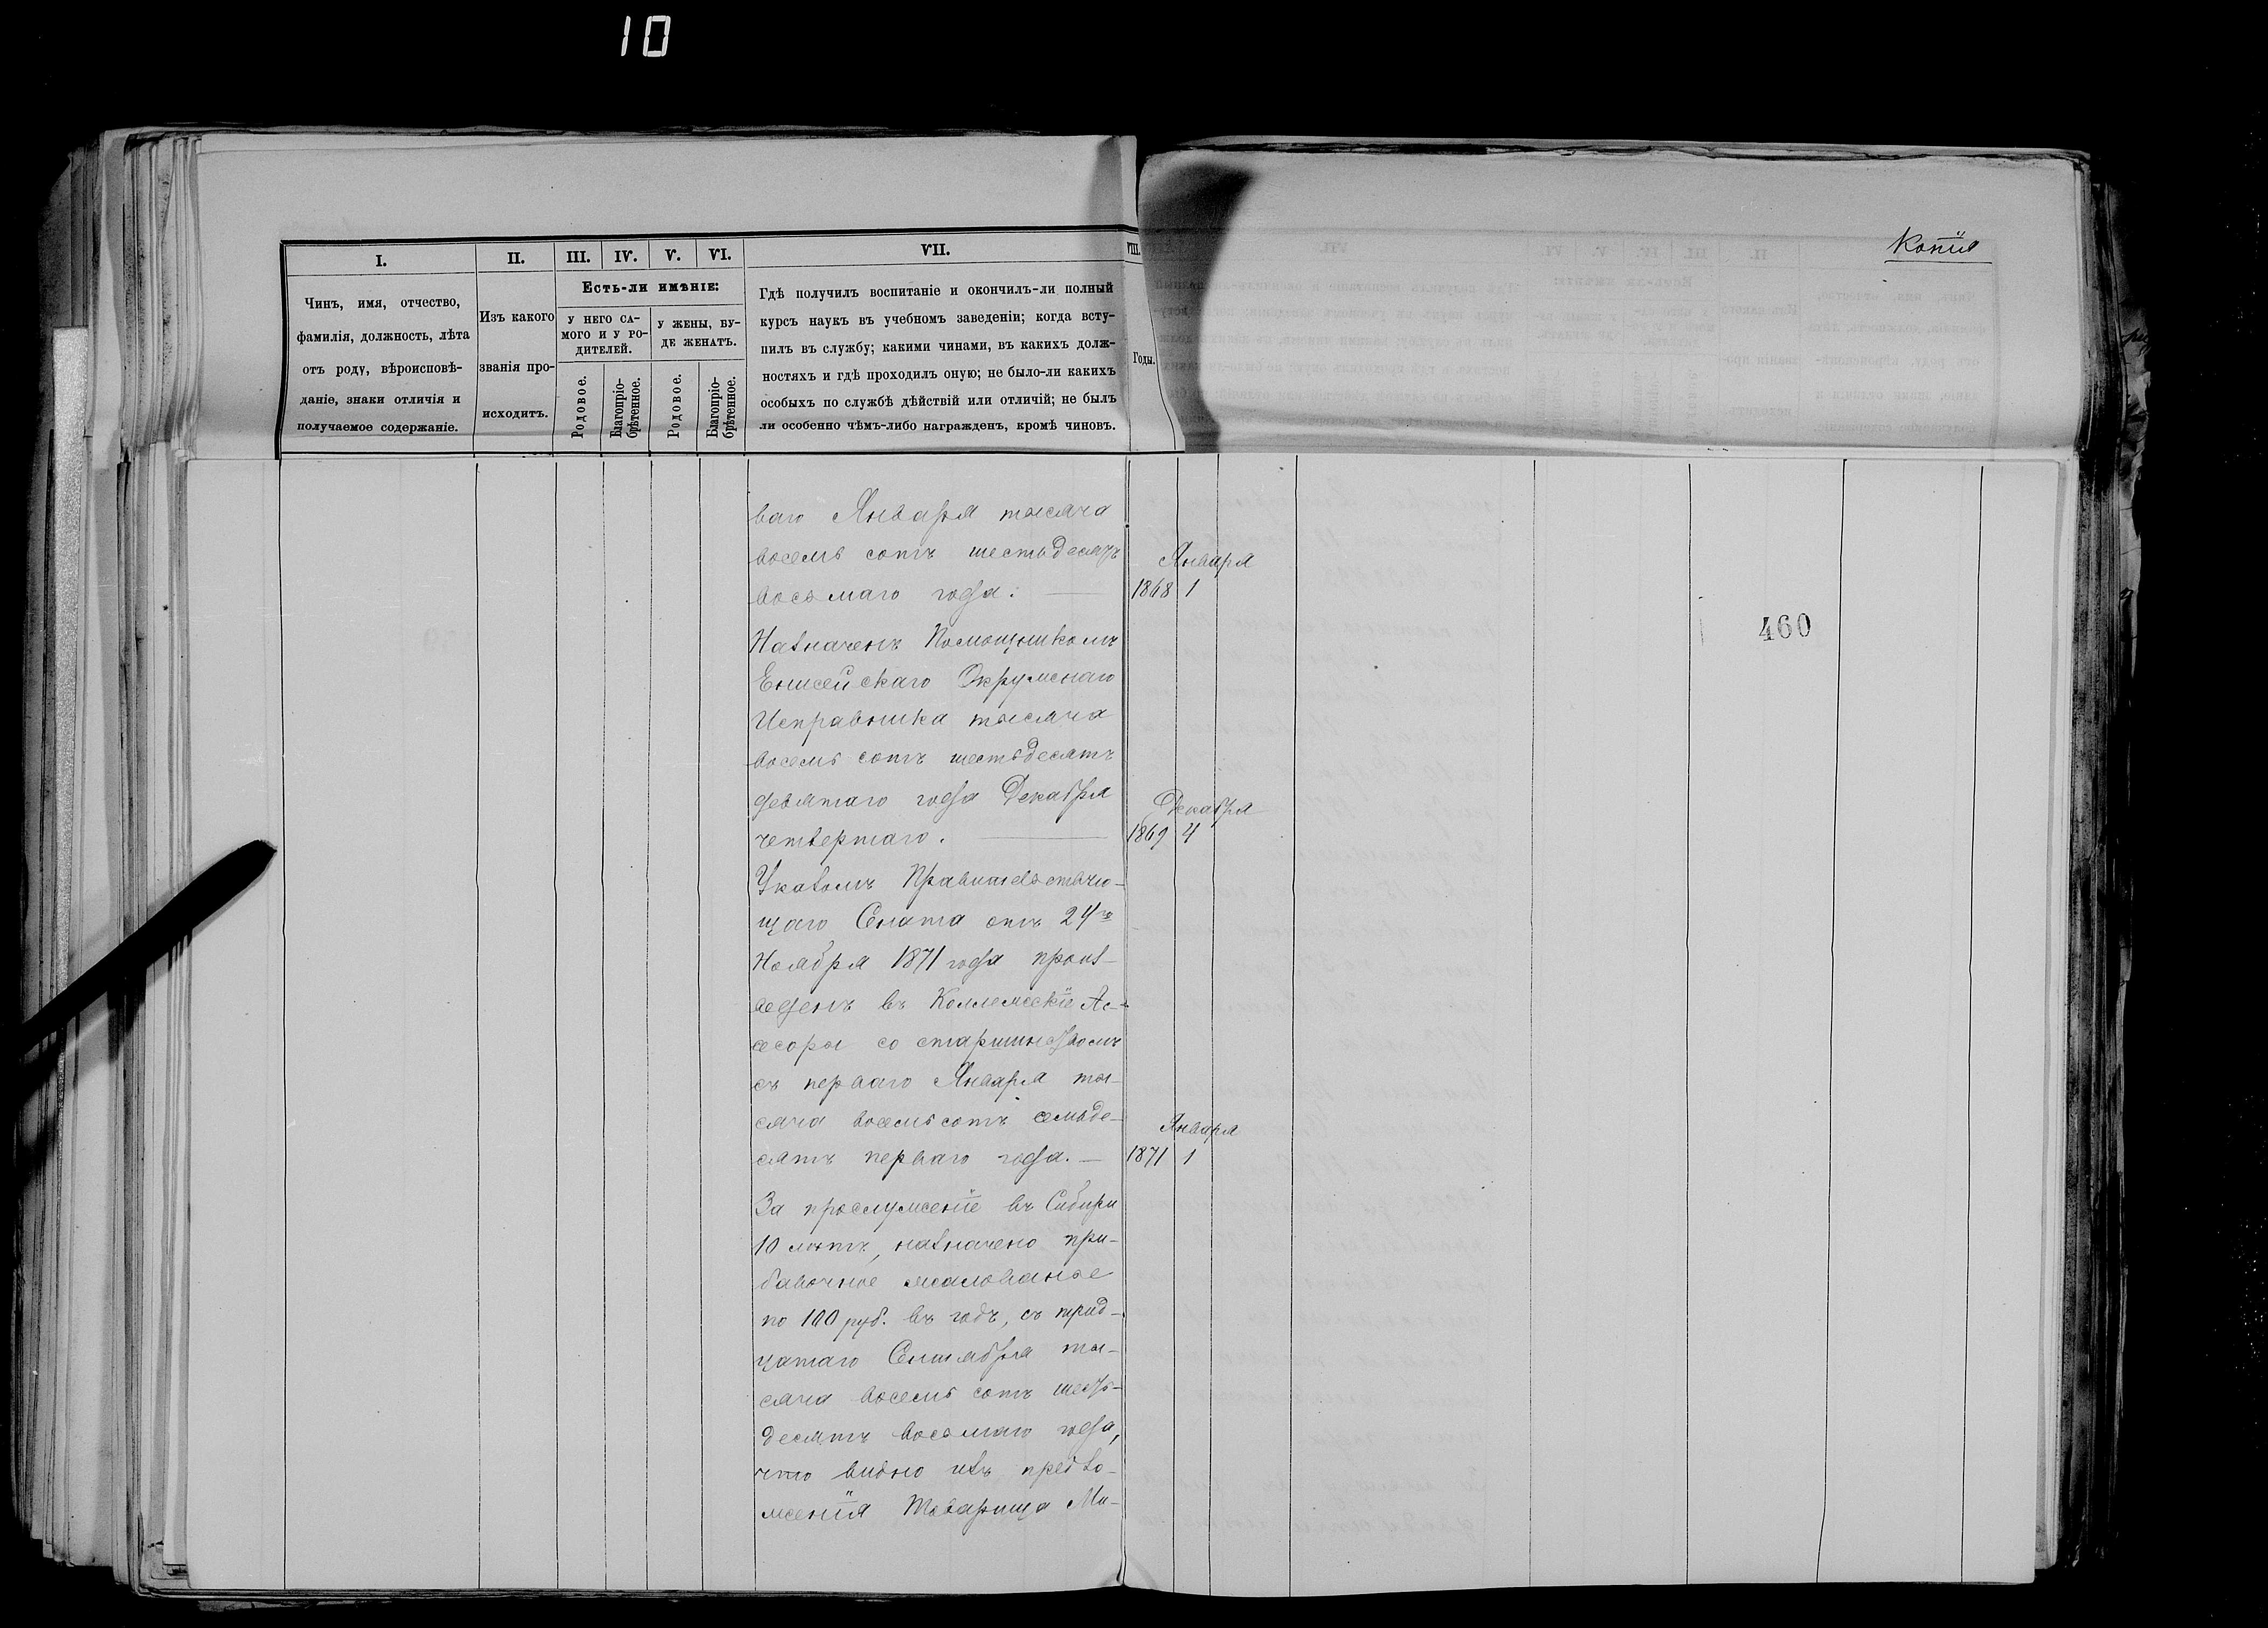 10
Копія
I.
II.
III.
IV.
V.
VI.
VII.
VIII.
Чинъ, имя, отчество,
фамилія, должность, лѣта
отъ роду, вѣроисповѣ-
даніе, знаки отличія и
получаемое содержаніе.
Изъ какого
званія про-
исходитъ.
Есть-ли имѣніе:
у него са-
мого и у ро-
дителей.
у жены, бу-
де женатъ.
Родовое.
Благопріо-
брѣтенное.
Родовое.
Благопріо-
брѣтенное.
Гдѣ получилъ воспитаніе и окончилъ-ли полный
курсъ наукъ въ учебномъ заведеніи; когда всту-
пилъ въ службу; какими чинами, въ какихъ долж-
ностяхъ и гдѣ проходилъ оную; не было-ли какихъ
особыхъ по службѣ дѣйствій или отличій; не былъ
ли особенно чѣмъ-либо награжденъ, кромѣ чиновъ.
Годы.
ваго Января тысяча
восемь сотъ шестьдесятъ
восьмаго года.
Января
1868 1
460
Назначенъ Помощникомъ
Енисейскаго Окружнаго
Исправника тысяча
восемь сотъ шестьдесятъ
девятаго года Декабря
четвертаго.
Декабря
1869 4
Указомъ Правительствую-
щаго Сената отъ 24го
Ноября 1871 года произ-
веденъ въ Коллежскіе Ас-
сесоры со старшинствомъ
съ перваго Января ты-
сяча восемьсотъ семьде-
сятъ перваго года.
Января
1871 1
За прослуженіе въ Сибири
10 лѣтъ, назначено при-
бавочное жалованье
по 100 руб. въ годъ, съ трид-
цатаго Сентября ты-
сяча восемь сотъ шесть-
десятъ восьмаго года,
что видно изъ предло-
женія Товарища Ми-